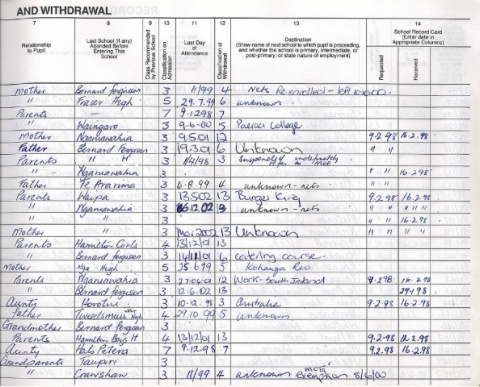 AND WITHDRAWAL
7 8 9 10 11 12 13 14
Relationship to Pupil
Last School (if any) Attended Before Entering This School
Class Recommended by Previous School
Classification on Admission
Last Day of Attendance
Classification at Withdrawal
Destination
(Show name of next school to which pupil is proceeding, and whether the school is primary, intermediate, or post-primary, or state nature of employment)
School Record Card
(Enter date in Appropriate Columns)
Requested
Received
Mother Bernard Ferguson 3 11/99 4
" Fraser High 5 29.7.99 6 unknown
Parents — 7 9.12.98 7
" Waingaro 3 9-6-00 5 College
Mother Ngaruawahia 3 9.5.01 12 9.2.98 16.2.98
Father Bernard Ferguson 3 19.3.01 6 Unknown " "
Parents " " 3 1/4/98 3 Suspended indefinitely
" Ngaruawahia 3 " " 16.2.98
Father Te Araroa 3 6.8.99 4 unknown
Parents Waipa 3 13.5.02 13 Burger King 9.2.98 16.2.98
" Ngaruawahia 3 12.02 unknown " " " "
" " 3 " " 16.2.98
Mother " 3 Mar 2002 13 Unknown " "
Parents Hamilton Girls 4 13/12/01 13
" Bernard Ferguson 3 14/11/01 6 catering course
Mother High 5 25.6.99 5 Kohanga Reo
Parents Ngaruawahia 3 12 Work - South Island 9.2.98 16.2.98
" Bernard Ferguson 3 12.6.02
Aunty Horotiu 3 10.12.98 3 Australia 9.2.98 16.2.98
Father 4 29.10.99 5 unknown
Grandmother Bernard Ferguson 3
Parents Hamilton Boys H 4 13/12/01 13 9.2.98 16.2.98
Aunty Hato Petera 7 9.12.98 7 9.2.98 16.2.98
Grandparents Taupiri 3
" Crawshaw 3 11/99 4 unknown exemption 5/6/00